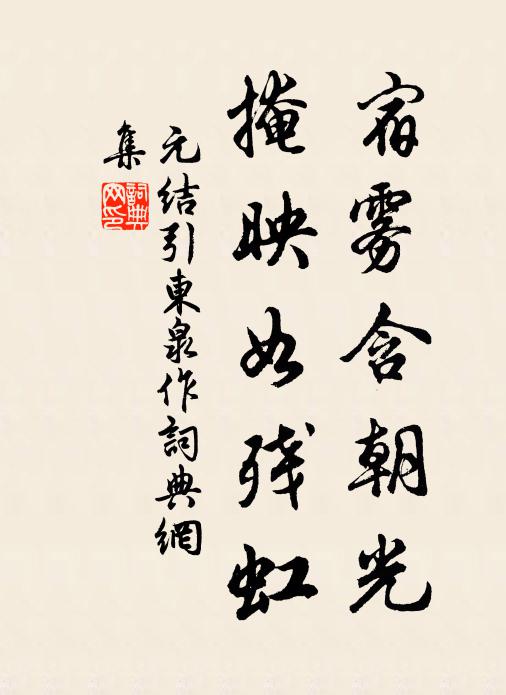 宿雾含朝光
掩映如残虹
元结引東泉作詞典網
集
詞典网印